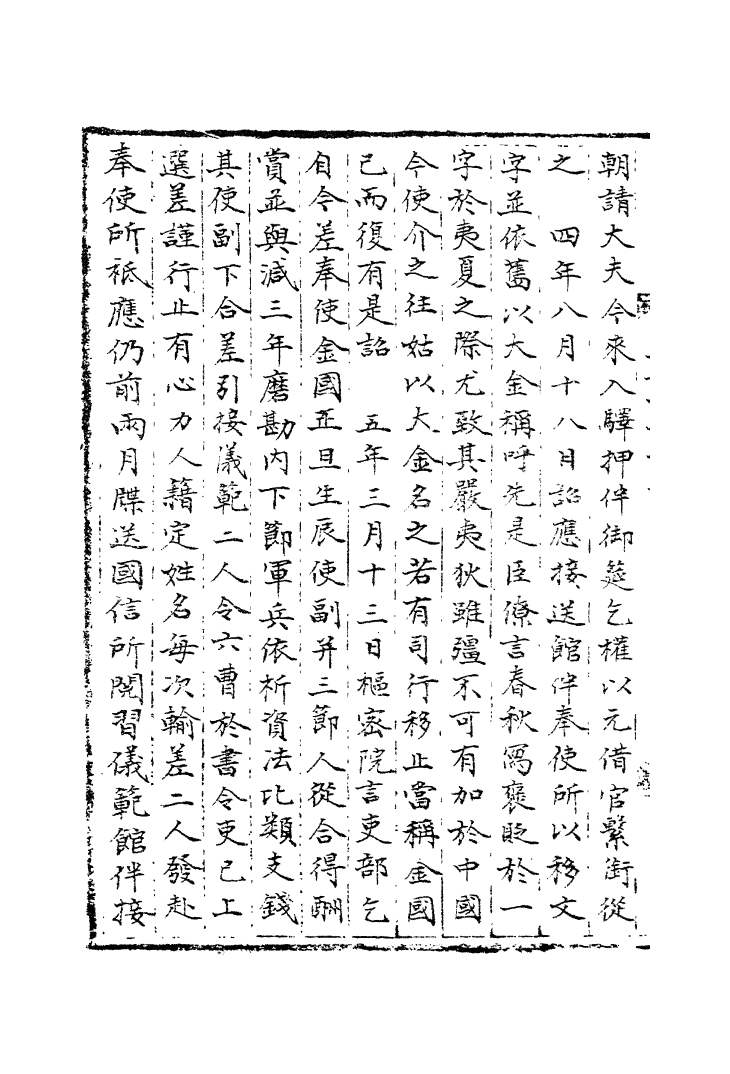 朝請大夫今來入驛押伴御筵乞權以元借官繫銜從
之　四年八月十八日詔應接送館伴奉使所以移文
字並依舊以大金稱呼先是臣僚言春秋寓褒貶於一
字於夷夏之際尤致其嚴夷狄雖彊不可有加於中國
今使介之往姑以大金名之若有司行移止當稱金國
已而復有是詔　五年三月十三日樞密院言吏部乞
自今差奉使金國正旦生辰使副并三節人從合得酬
賞並與減三年磨勘內下節軍兵依析資法比類支錢
其使副下合差引接儀範二人令六曹於書令吏已上
選差謹行止有心力人籍定姓名每次輸差二人發赴
奉使所袛應仍前兩月牒送國信所閱習儀範館伴接